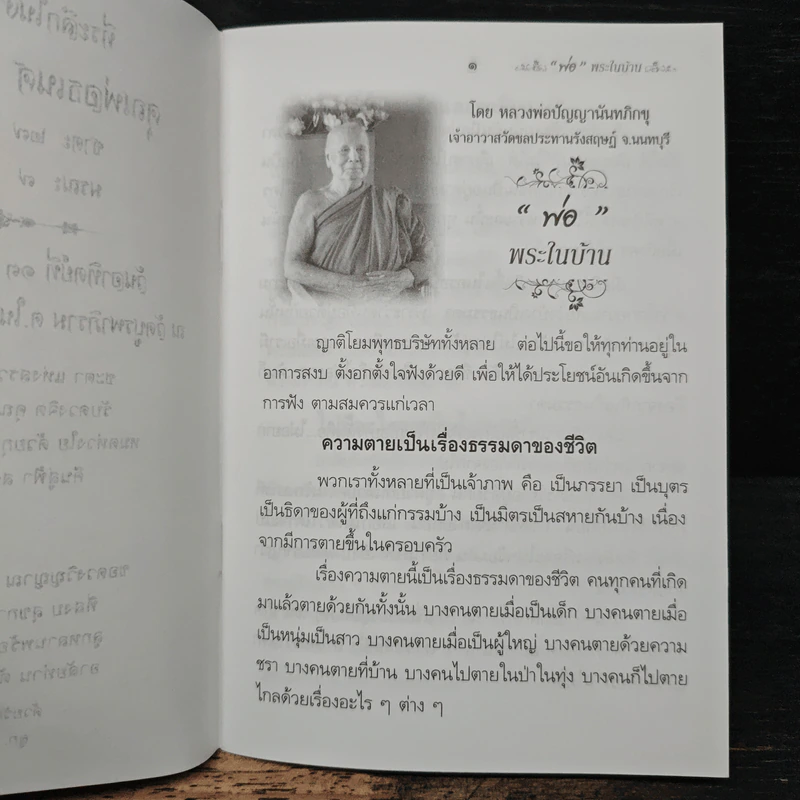 ๑
“พ่อ” พระในบ้าน
โดย หลวงพ่อปัญญานันทภิกขุ
เจ้าอาวาสวัดชลประทานรังสฤษฎ์ จ.นนทบุรี
“ พ่อ ”
พระในบ้าน
ญาติโยมพุทธบริษัททั้งหลาย ต่อไปนี้ขอให้ทุกท่านอยู่ใน
อาการสงบ ตั้งอกตั้งใจฟังด้วยดี เพื่อให้ได้ประโยชน์อันเกิดขึ้นจาก
การฟัง ตามสมควรแก่เวลา
ความตายเป็นเรื่องธรรมดาของชีวิต
พวกเราทั้งหลายที่เป็นเจ้าภาพ คือ เป็นภรรยา เป็นบุตร
เป็นธิดาของผู้ที่ถึงแก่กรรมบ้าง เป็นมิตรเป็นสหายกันบ้าง เนื่อง
จากมีการตายขึ้นในครอบครัว
เรื่องความตายนี้เป็นเรื่องธรรมดาของชีวิต คนทุกคนที่เกิด
มาแล้วตายด้วยกันทั้งนั้น บางคนตายเมื่อเป็นเด็ก บางคนตายเมื่อ
เป็นหนุ่มเป็นสาว บางคนตายเมื่อเป็นผู้ใหญ่ บางคนตายด้วยความ
ชรา บางคนตายที่บ้าน บางคนไปตายในป่าในทุ่ง บางคนก็ไปตาย
ไกลด้วยเรื่องอะไร ๆ ต่าง ๆ